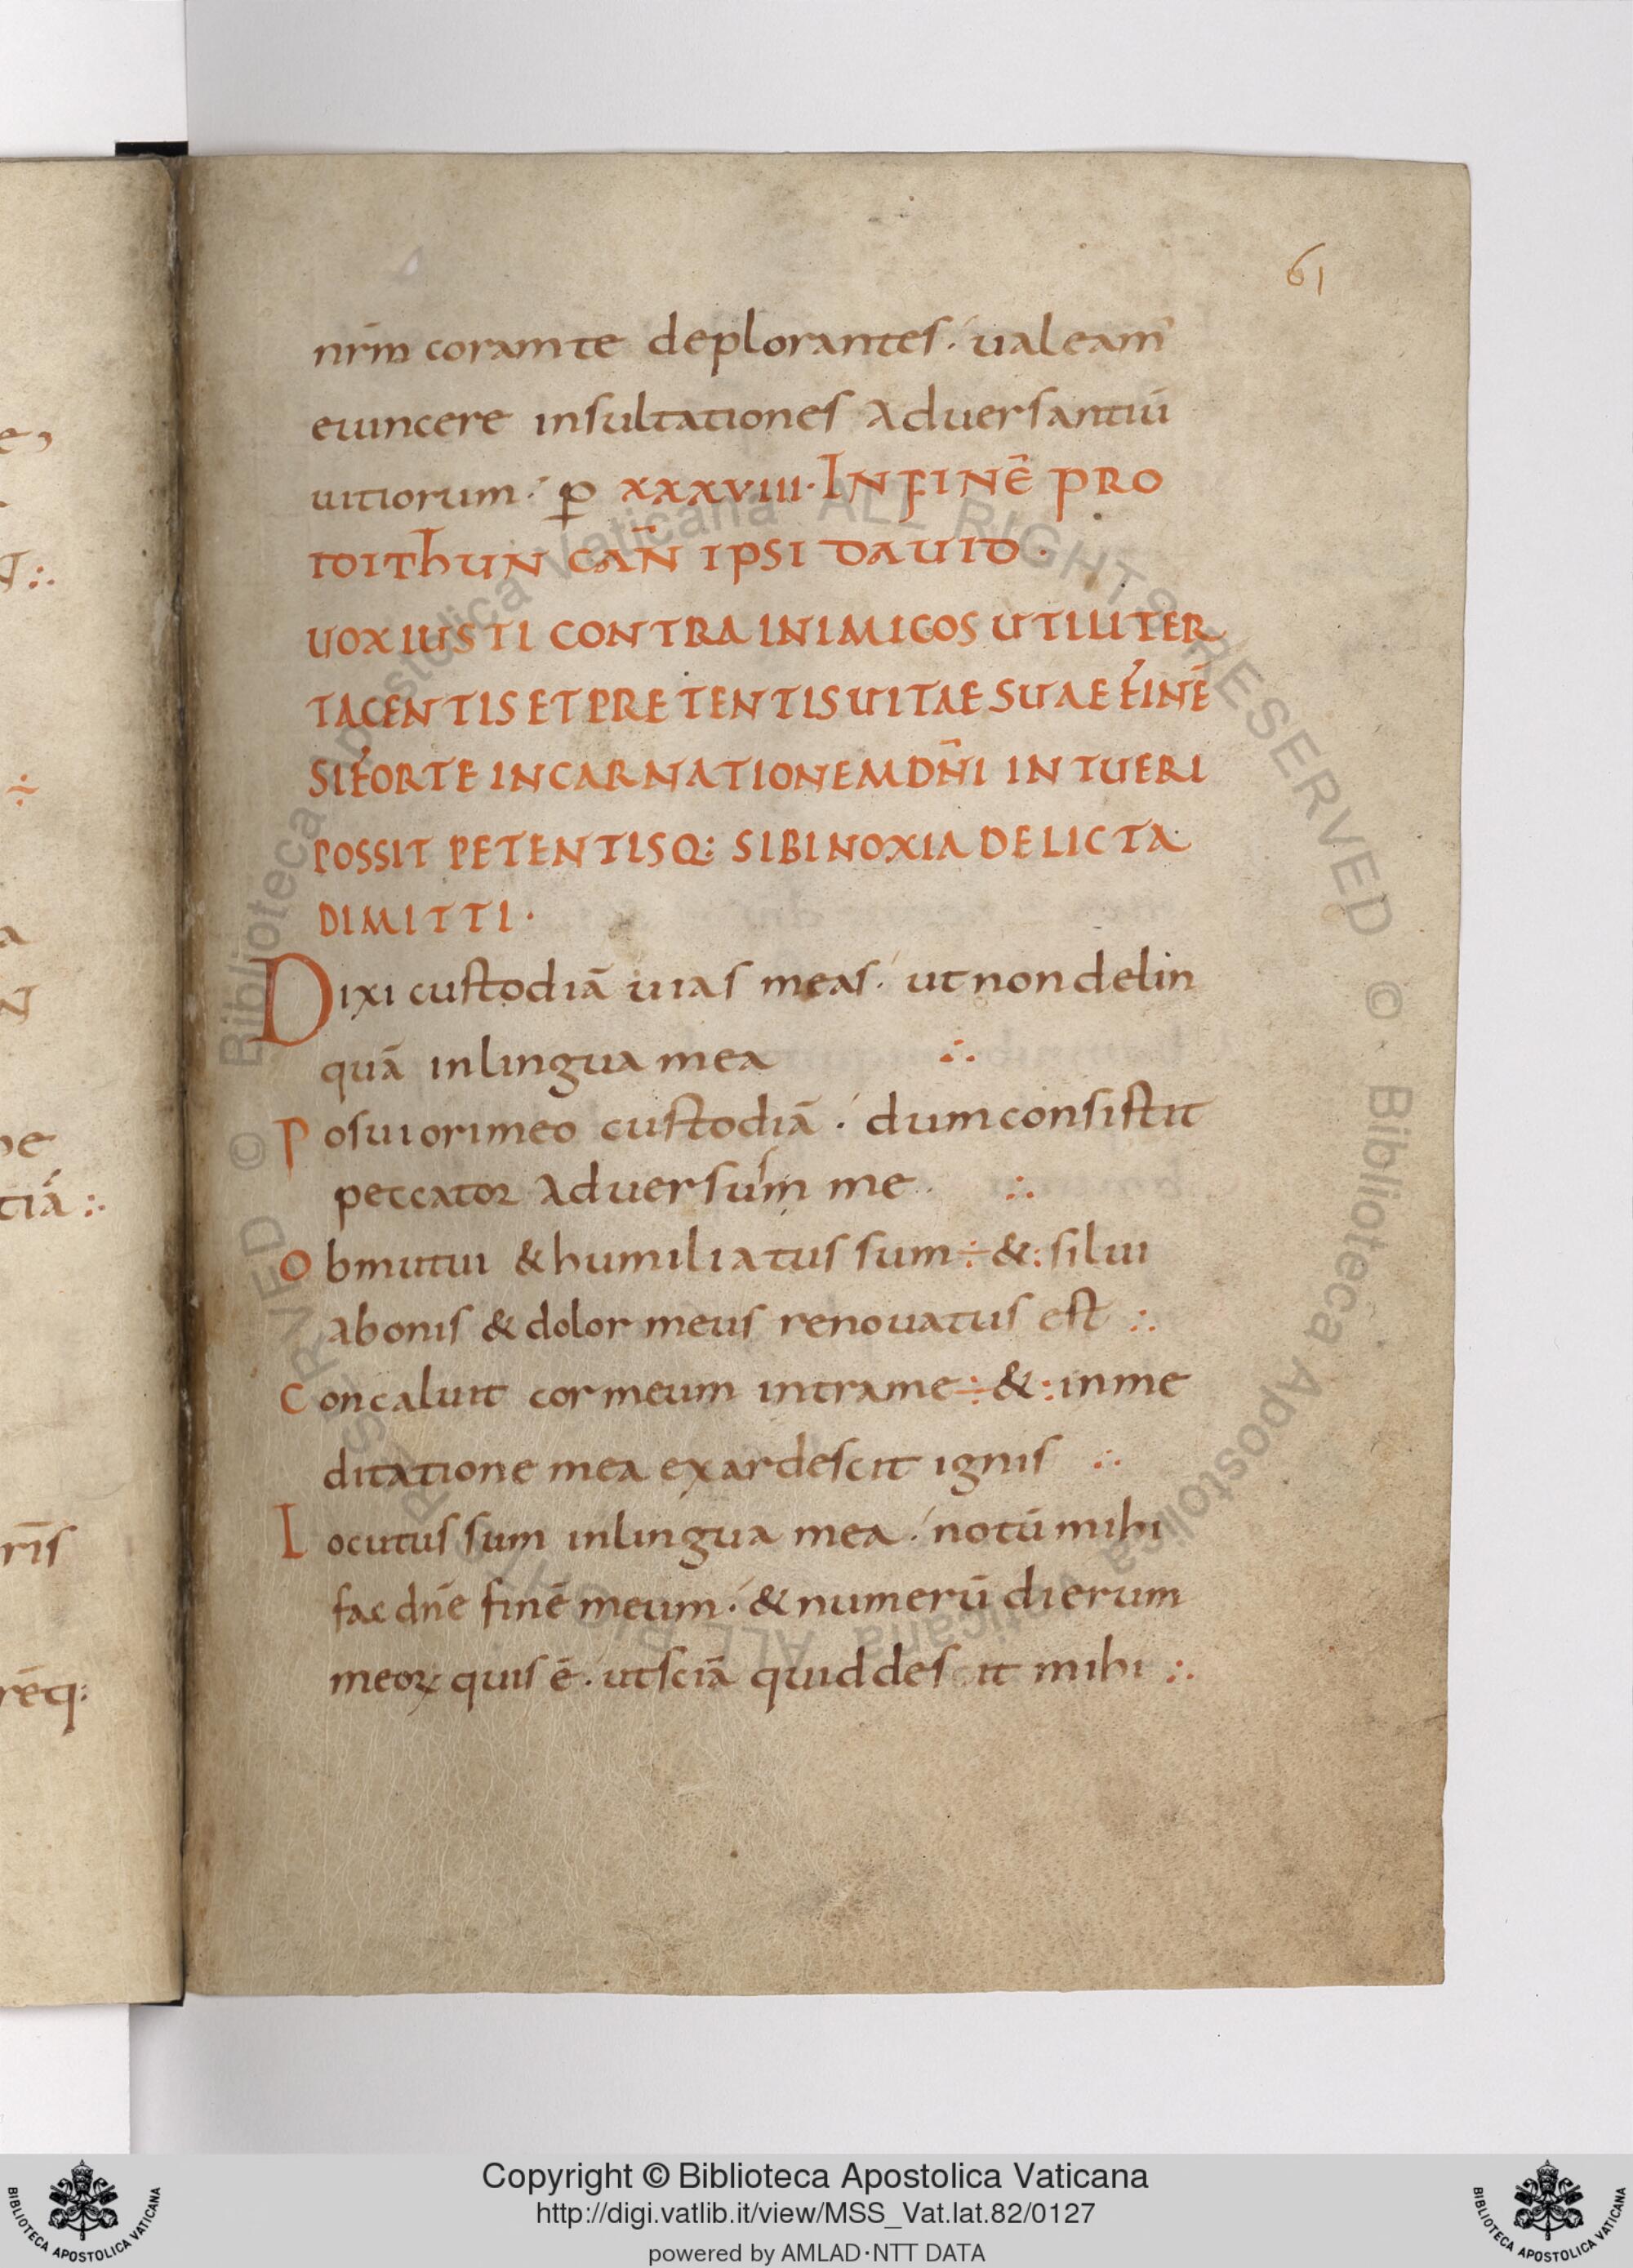 61
nr̄m coram te deplorantes· ualeam'
euincere insultationes aduersantiū
uitiorum· p̱ XXXVIII· IN FINĒ PRO
IDITHUN CAN̄ IPSI DAUID·
UOX IUSTI CONTRA INIMICOS UTILITER
TACENTIS ET PRETENTIS UITAE SUAE FINĒ
SI FORTE INCARNATIONEM DN̄I INTUERI
POSSIT PETENTISQ: SIBI NOXIA DELICTA
DIMITTI·
Dixi custodiā uias meas· ut non delin
quā in lingua mea ∴
Posui ori meo custodiā· dum consistit
peccator aduersum me ∴
Obmutui & humiliatus sum ÷ & : silui
a bonis & dolor meus renouatus est ∴
Concaluit cor meum intra me ÷ & : in me
ditatione mea exardescit ignis ∴
Locutus sum in lingua mea· notū mihi
fac dn̄e finē meum· & numerū dierum
meoꝝ quis ē· ut sciā quid des it mihi ∴
e,
∴
÷
a
N
pe
tiā ∴
rīs
rēq:
© Biblioteca Apostolica Vaticana ALL RIGHTS RESERVED © Biblioteca Apostolica Vaticana ALL RIGHTS RESERVED
BIBLIOTECA APOSTOLICA VATICANA
Copyright © Biblioteca Apostolica Vaticana
http://digi.vatlib.it/view/MSS_Vat.lat.82/0127
powered by AMLAD·NTT DATA
BIBLIOTECA APOSTOLICA VATICANA